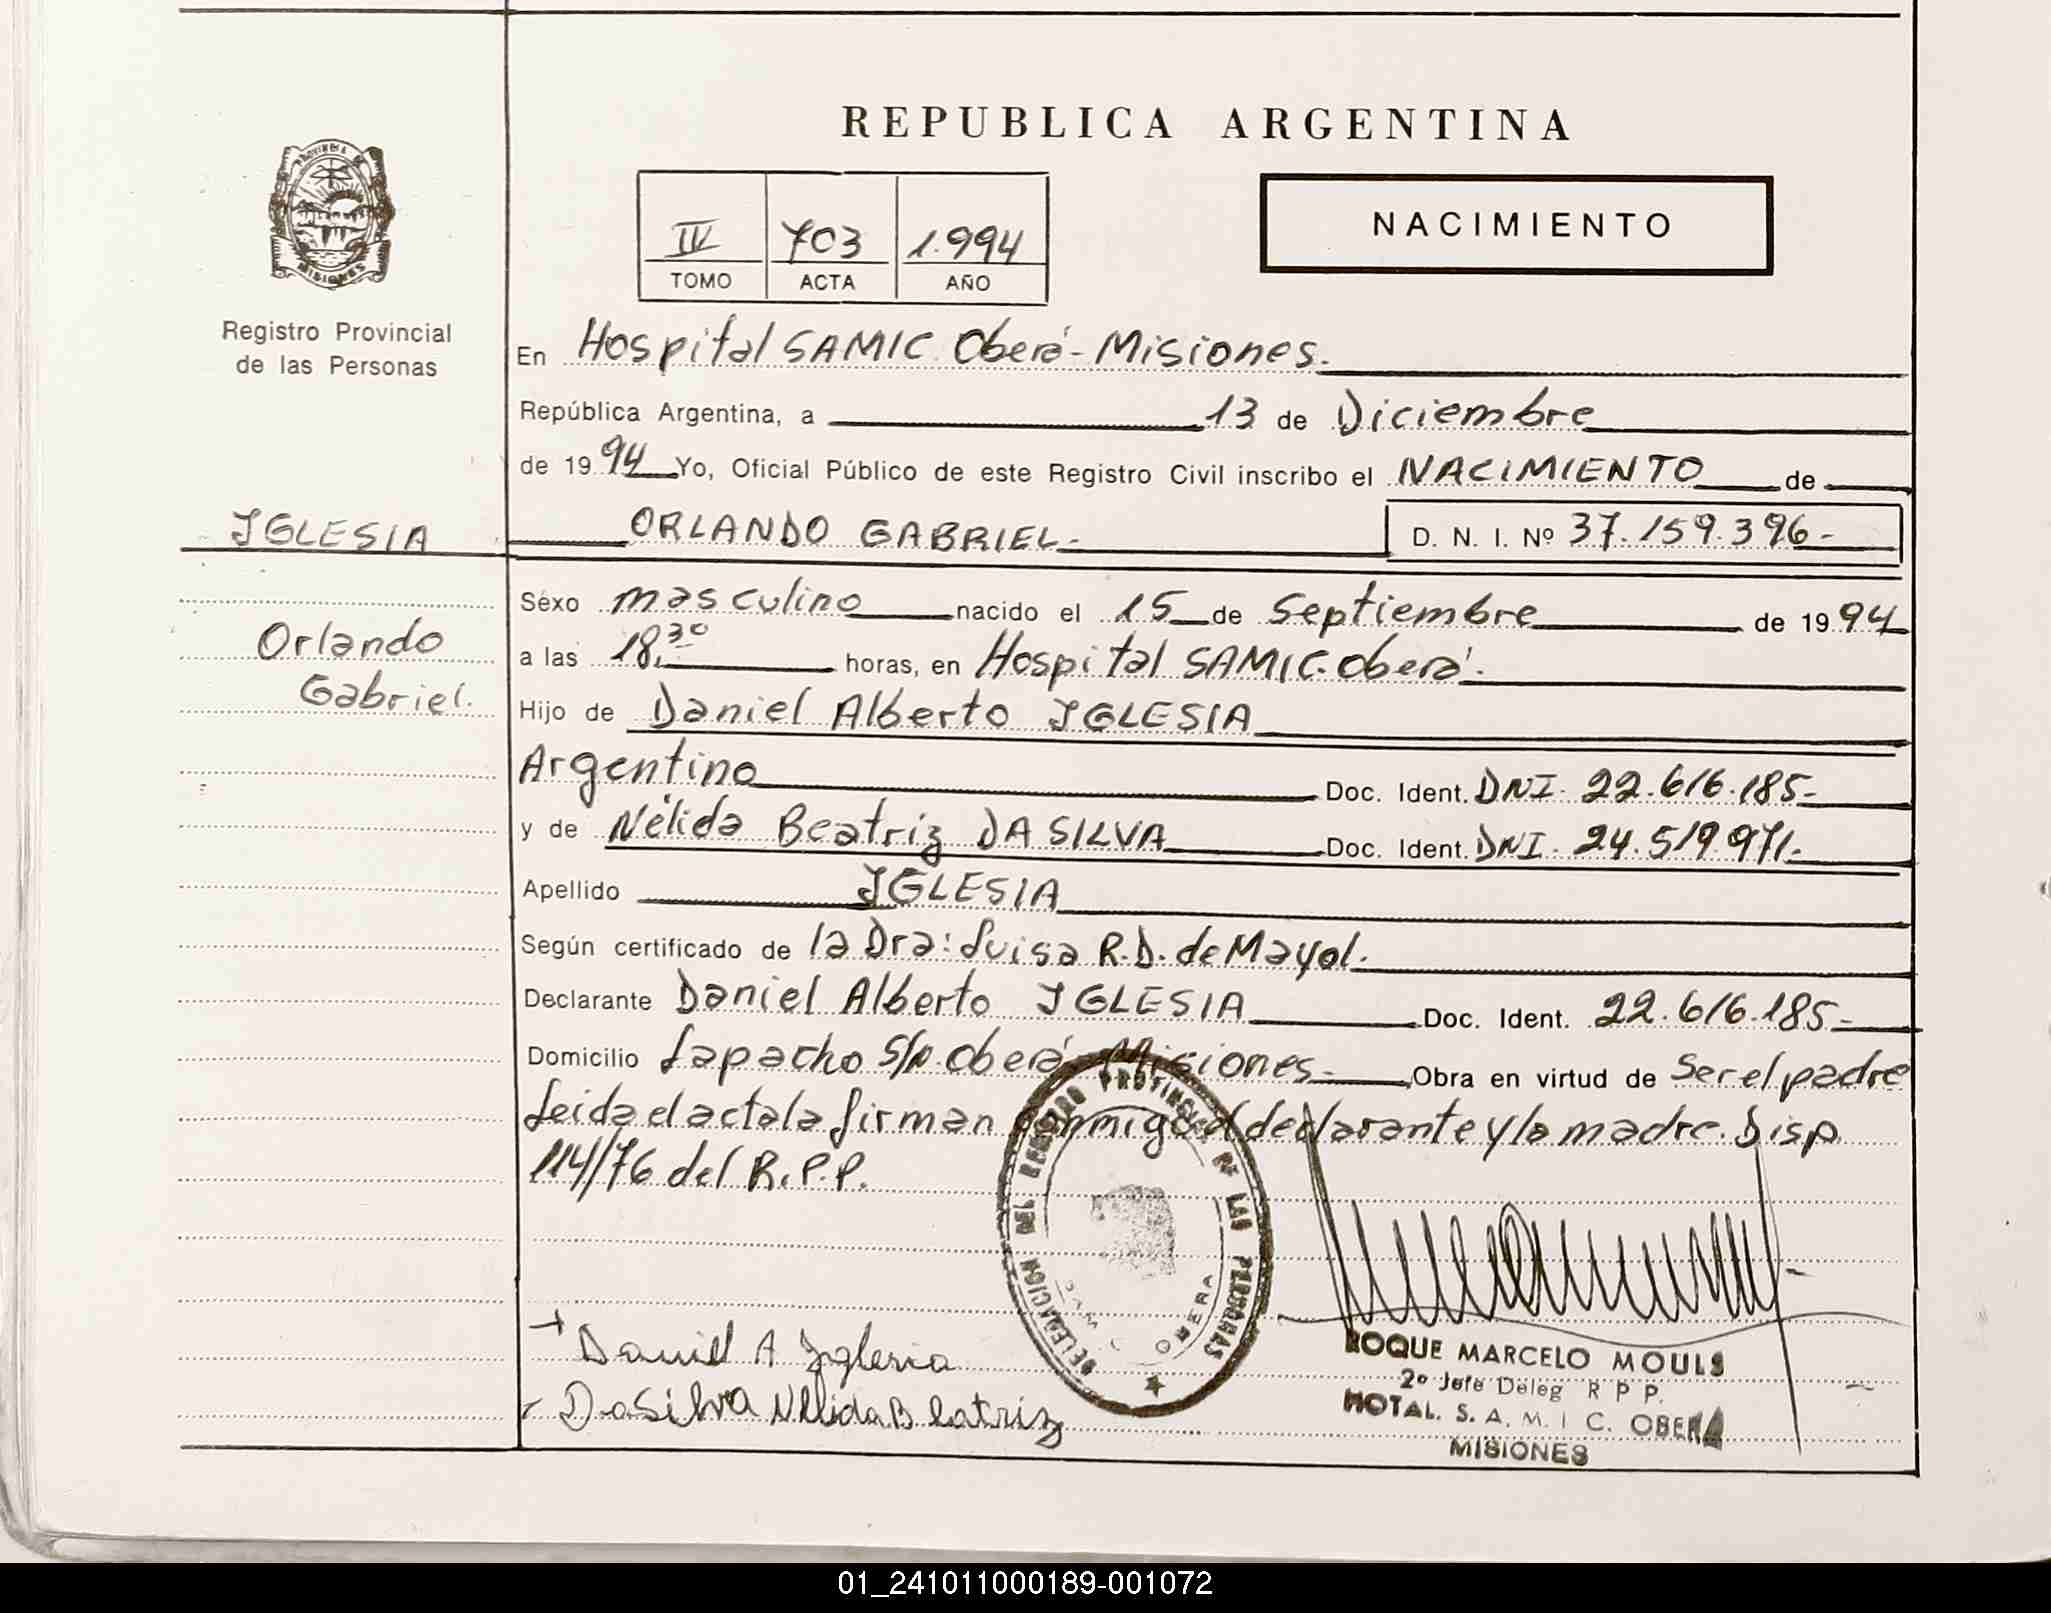 REPUBLICA ARGENTINA
PROVINCIA DE
MISIONES
Registro Provincial
de las Personas
NACIMIENTO
IV 703 1.994
TOMO ACTA AÑO
En Hospital SAMIC Oberá - Misiones.
República Argentina, a 13 de Diciembre
de 1994 Yo, Oficial Público de este Registro Civil inscribo el NACIMIENTO de
IGLESIA
ORLANDO GABRIEL.- D. N. I. Nº 37.159.396-
Orlando
Gabriel.
Sexo masculino nacido el 15 de Septiembre de 1994
a las 18,30 horas, en Hospital SAMIC. Oberá.
Hijo de Daniel Alberto IGLESIA
Argentino Doc. Ident. DNI. 22.616.185-
y de Nélida Beatriz DA SILVA Doc. Ident. DNI. 24.519971-
Apellido IGLESIA
Según certificado de la Dra: Luisa R.D. de Mayol.
Declarante Daniel Alberto IGLESIA Doc. Ident. 22.616.185-
Domicilio Lapacho S/n. Oberá Misiones.- Obra en virtud de Ser el padre
Leida el acta la firman conmigo el declarante y la madre. Disp.
114/76 del R.P.P.
DELEGACION DEL REGISTRO PROVINCIAL DE LAS PERSONAS
OBERA
Daniel A Iglesia
DaSilva Nelida Beatriz
ROQUE MARCELO MOULS
2º Jefe Deleg R P P.
HOTAL. S. A. M. I C. OBERA
MISIONES
01_241011000189-001072